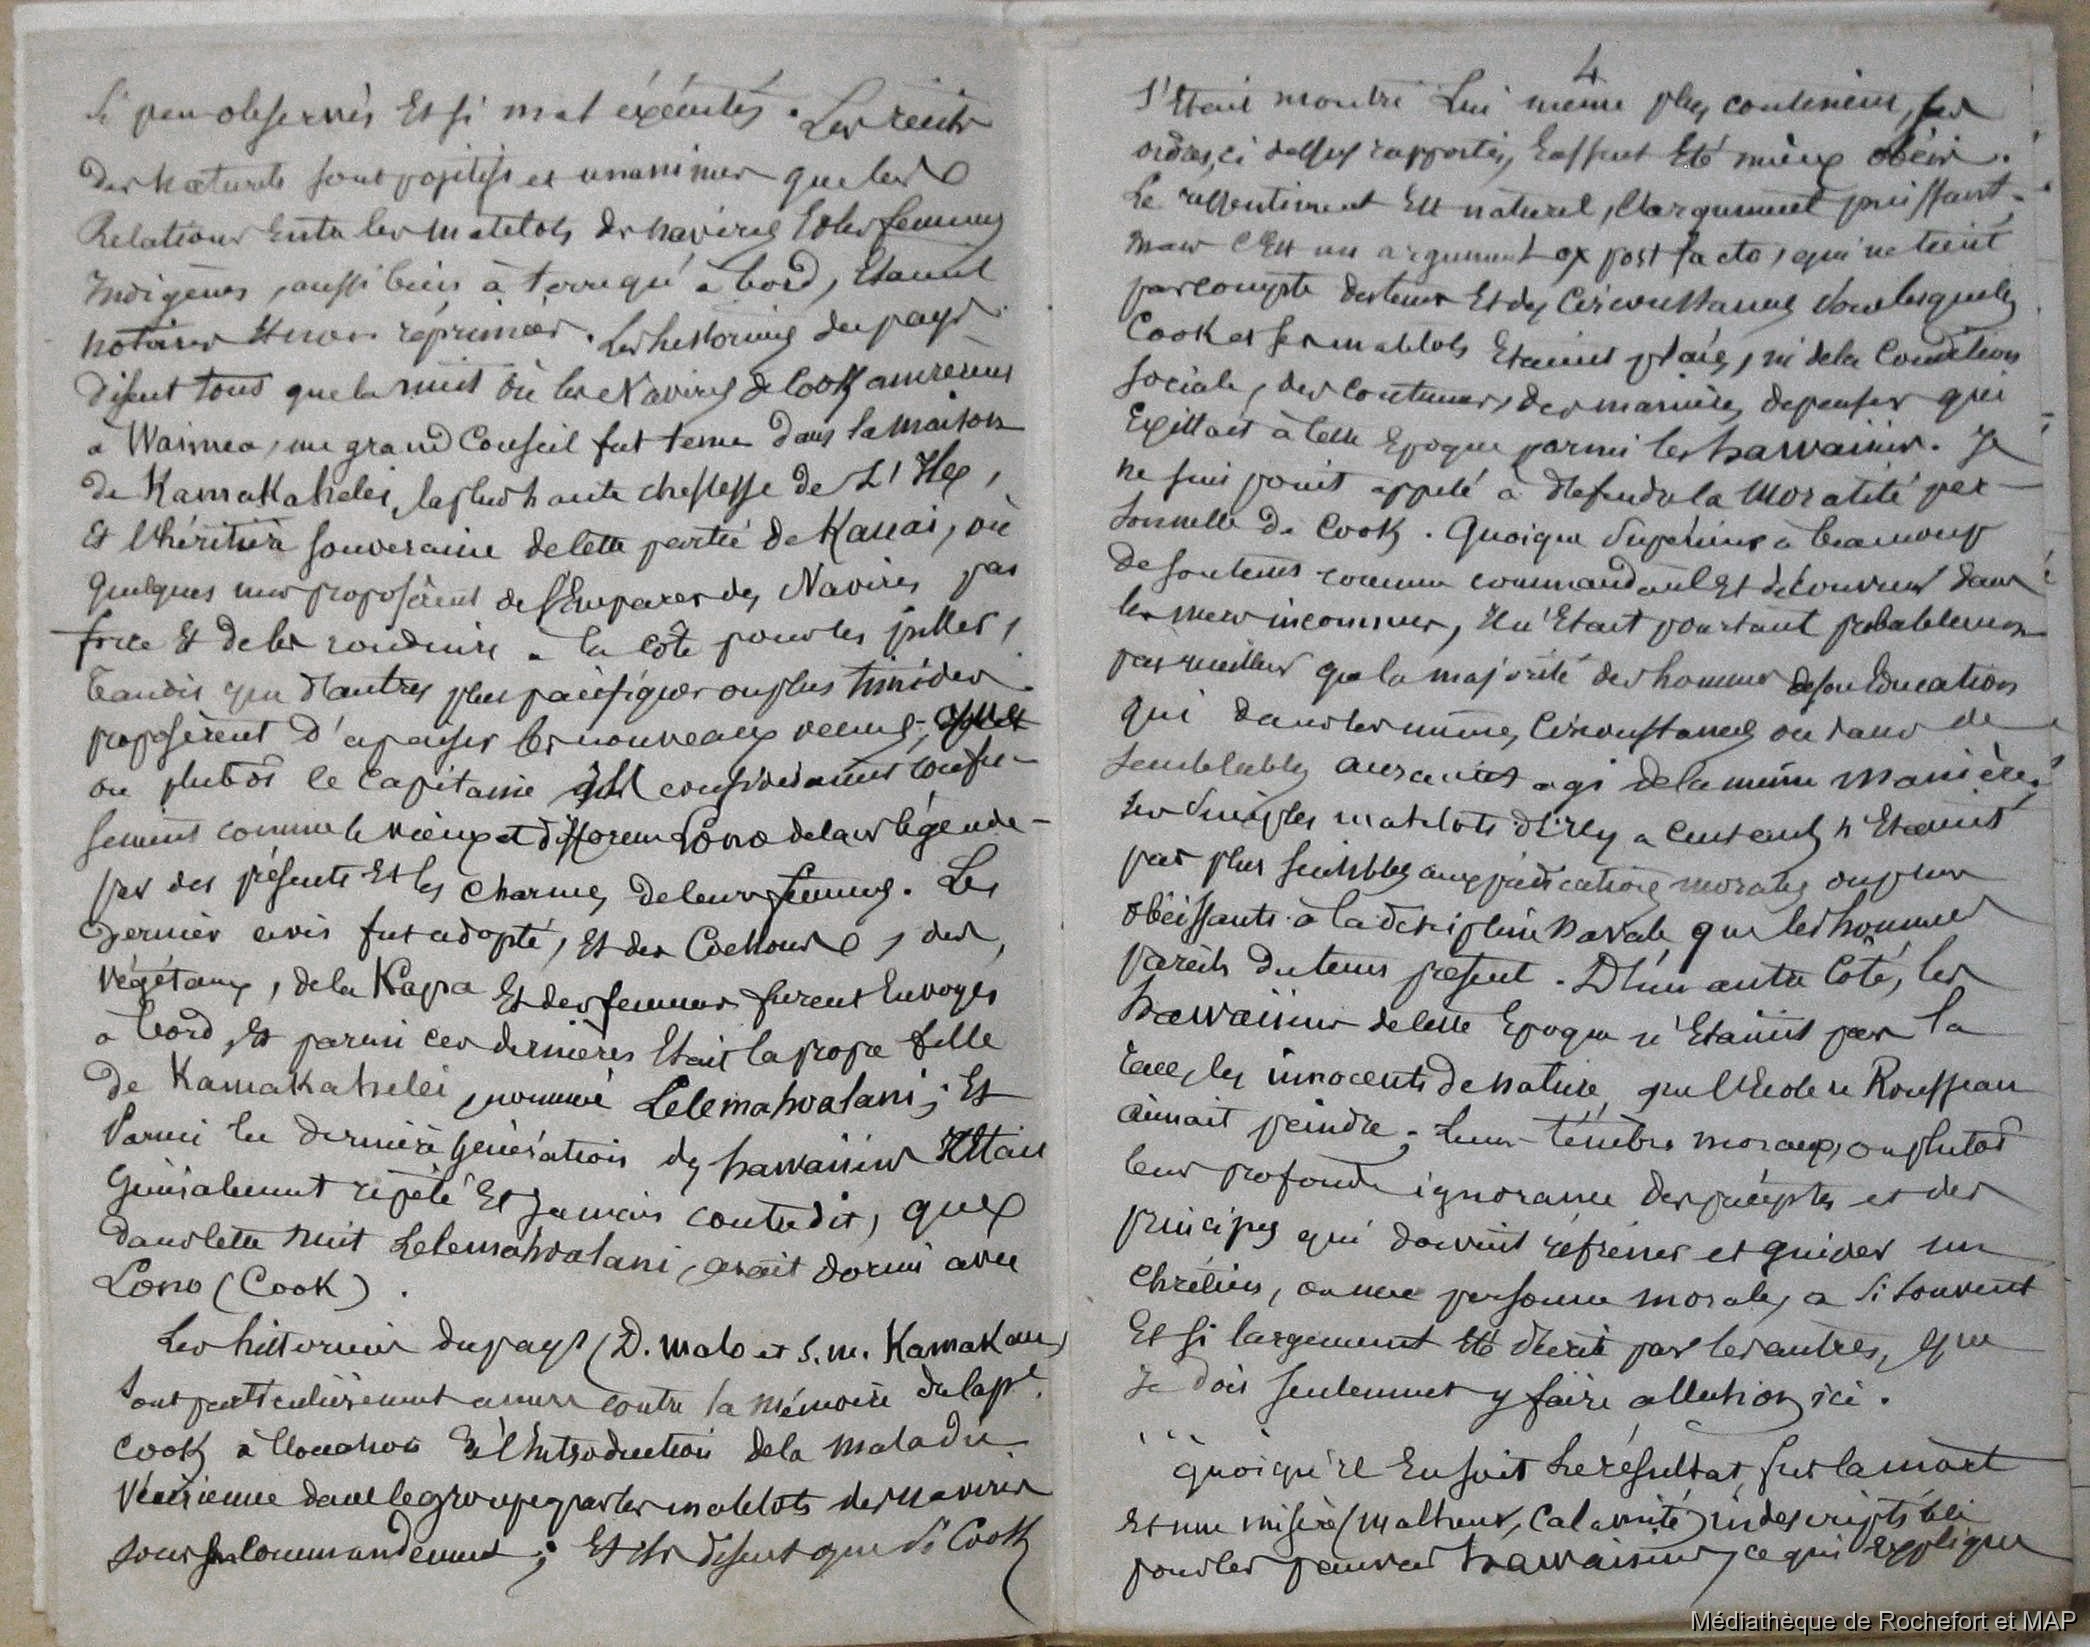 si peu observés Et si mal éxécutés. Les récits
des naturels sont positifs et unanimes que les
Relations Entre les matelots des navires Et les femmes
Indigènes, aussi bien à terre qu'à bord, Etaient
notoires Et non réprimées. Les historiens du pays
disent tous que la nuit où les Navires de Cook ancrèrent
à Waimea, un grand Conseil fut tenu dans la maison
de Kamakahelei, la plus haute cheffesse de L'Ile,
Et l'héritière souveraine de cette partie de Kauai, où
quelques uns proposèrent de s'Emparer des Navires par
force Et de les conduire à la côte pour les piller,
tandis que d'autres plus pacifiques ou plus timides
proposèrent d'apaiser les nouveaux venus,
ou plutôt le Capitaine qu'ils considéraient confu-
sément comme le vieux et Lono de leurs légendes -
par des présents Et les charmes de leurs femmes. Le
dernier avis fut adopté, Et des Cochons, des
végétaux, de la Kapa Et des femmes furent Envoyés
à bord, Et parmi ces dernières Etait la propre fille
de Kamakahelei, nommée Lelemahoalani ; Et
Parmi la dernière Génération des hawaiiens Il Etait
Généralement répété Et Jamais contredit, que
dans cette nuit Lelemahoalani, avait dormi avec
Lono (Cook).
Les historiens du pays (D. Malo et S.M. Kamakau)
sont particulièrement amers contre la mémoire du Capt.
Cook à l'occasion de l'Introduction de la maladie
Vénérienne dans le groupe par les matelots des navires
sous son Commandement ; Et ils disent que si Cook
4
s'Etait montré Lui même plus continent, ses
ordres, ci dessus rapportés, Eussent Eté mieux obéis.
Le ressentiment Est naturel, l'argument puissant.
mais c'Est un argument ex post facto, qui ne tient
pas compte des temps Et des Circonstances dans lesquelles
Cook et ses matelots Etaient placés, ni de la Condition
sociale, des coutumes, des manières de penser qui
Existait à cette Epoque parmi les hawaiiens. Je
ne suis point appelé à défendre la Moralité per-
sonnelle de Cook. Quoique Supérieur à beaucoup
de son temps comme commandant Et découvreur dans
les mers inconnues, Il n'Etait pourtant probablement
pas meilleur que la majorité des hommes de son Education
qui dans les mêmes Circonstances ou dans de
semblables auraient agi de la même manière.
Les simples matelots d'il y a cent ans n'Etaient
pas plus sensibles aux prédications morales ou plus
obéissants à la discipline navale que les hommes
pareils du tems présent. D'un autre Côté, les
hawaiiens de cette Epoque n'Etaient pas la
race, les innocents de nature que l'Ecole Rousseau
aimait peindre ; Leurs ténèbres moraux, ou plutôt
leur profonde ignorance des préceptes et des
principes qui doivent réfréner et guider un
Chrétien, ou une personne morale, a si souvent
Et si largement Eté décrite par les autres, que
Je dois seulement y faire allusion ici.
Quoiqu'il En soit Le résultat fut la mort
Et une misère (malheur, Calamité) indescriptible
pour les pauvres hawaiiens, ce qui explique
Médiathèque de Rochefort et MAP